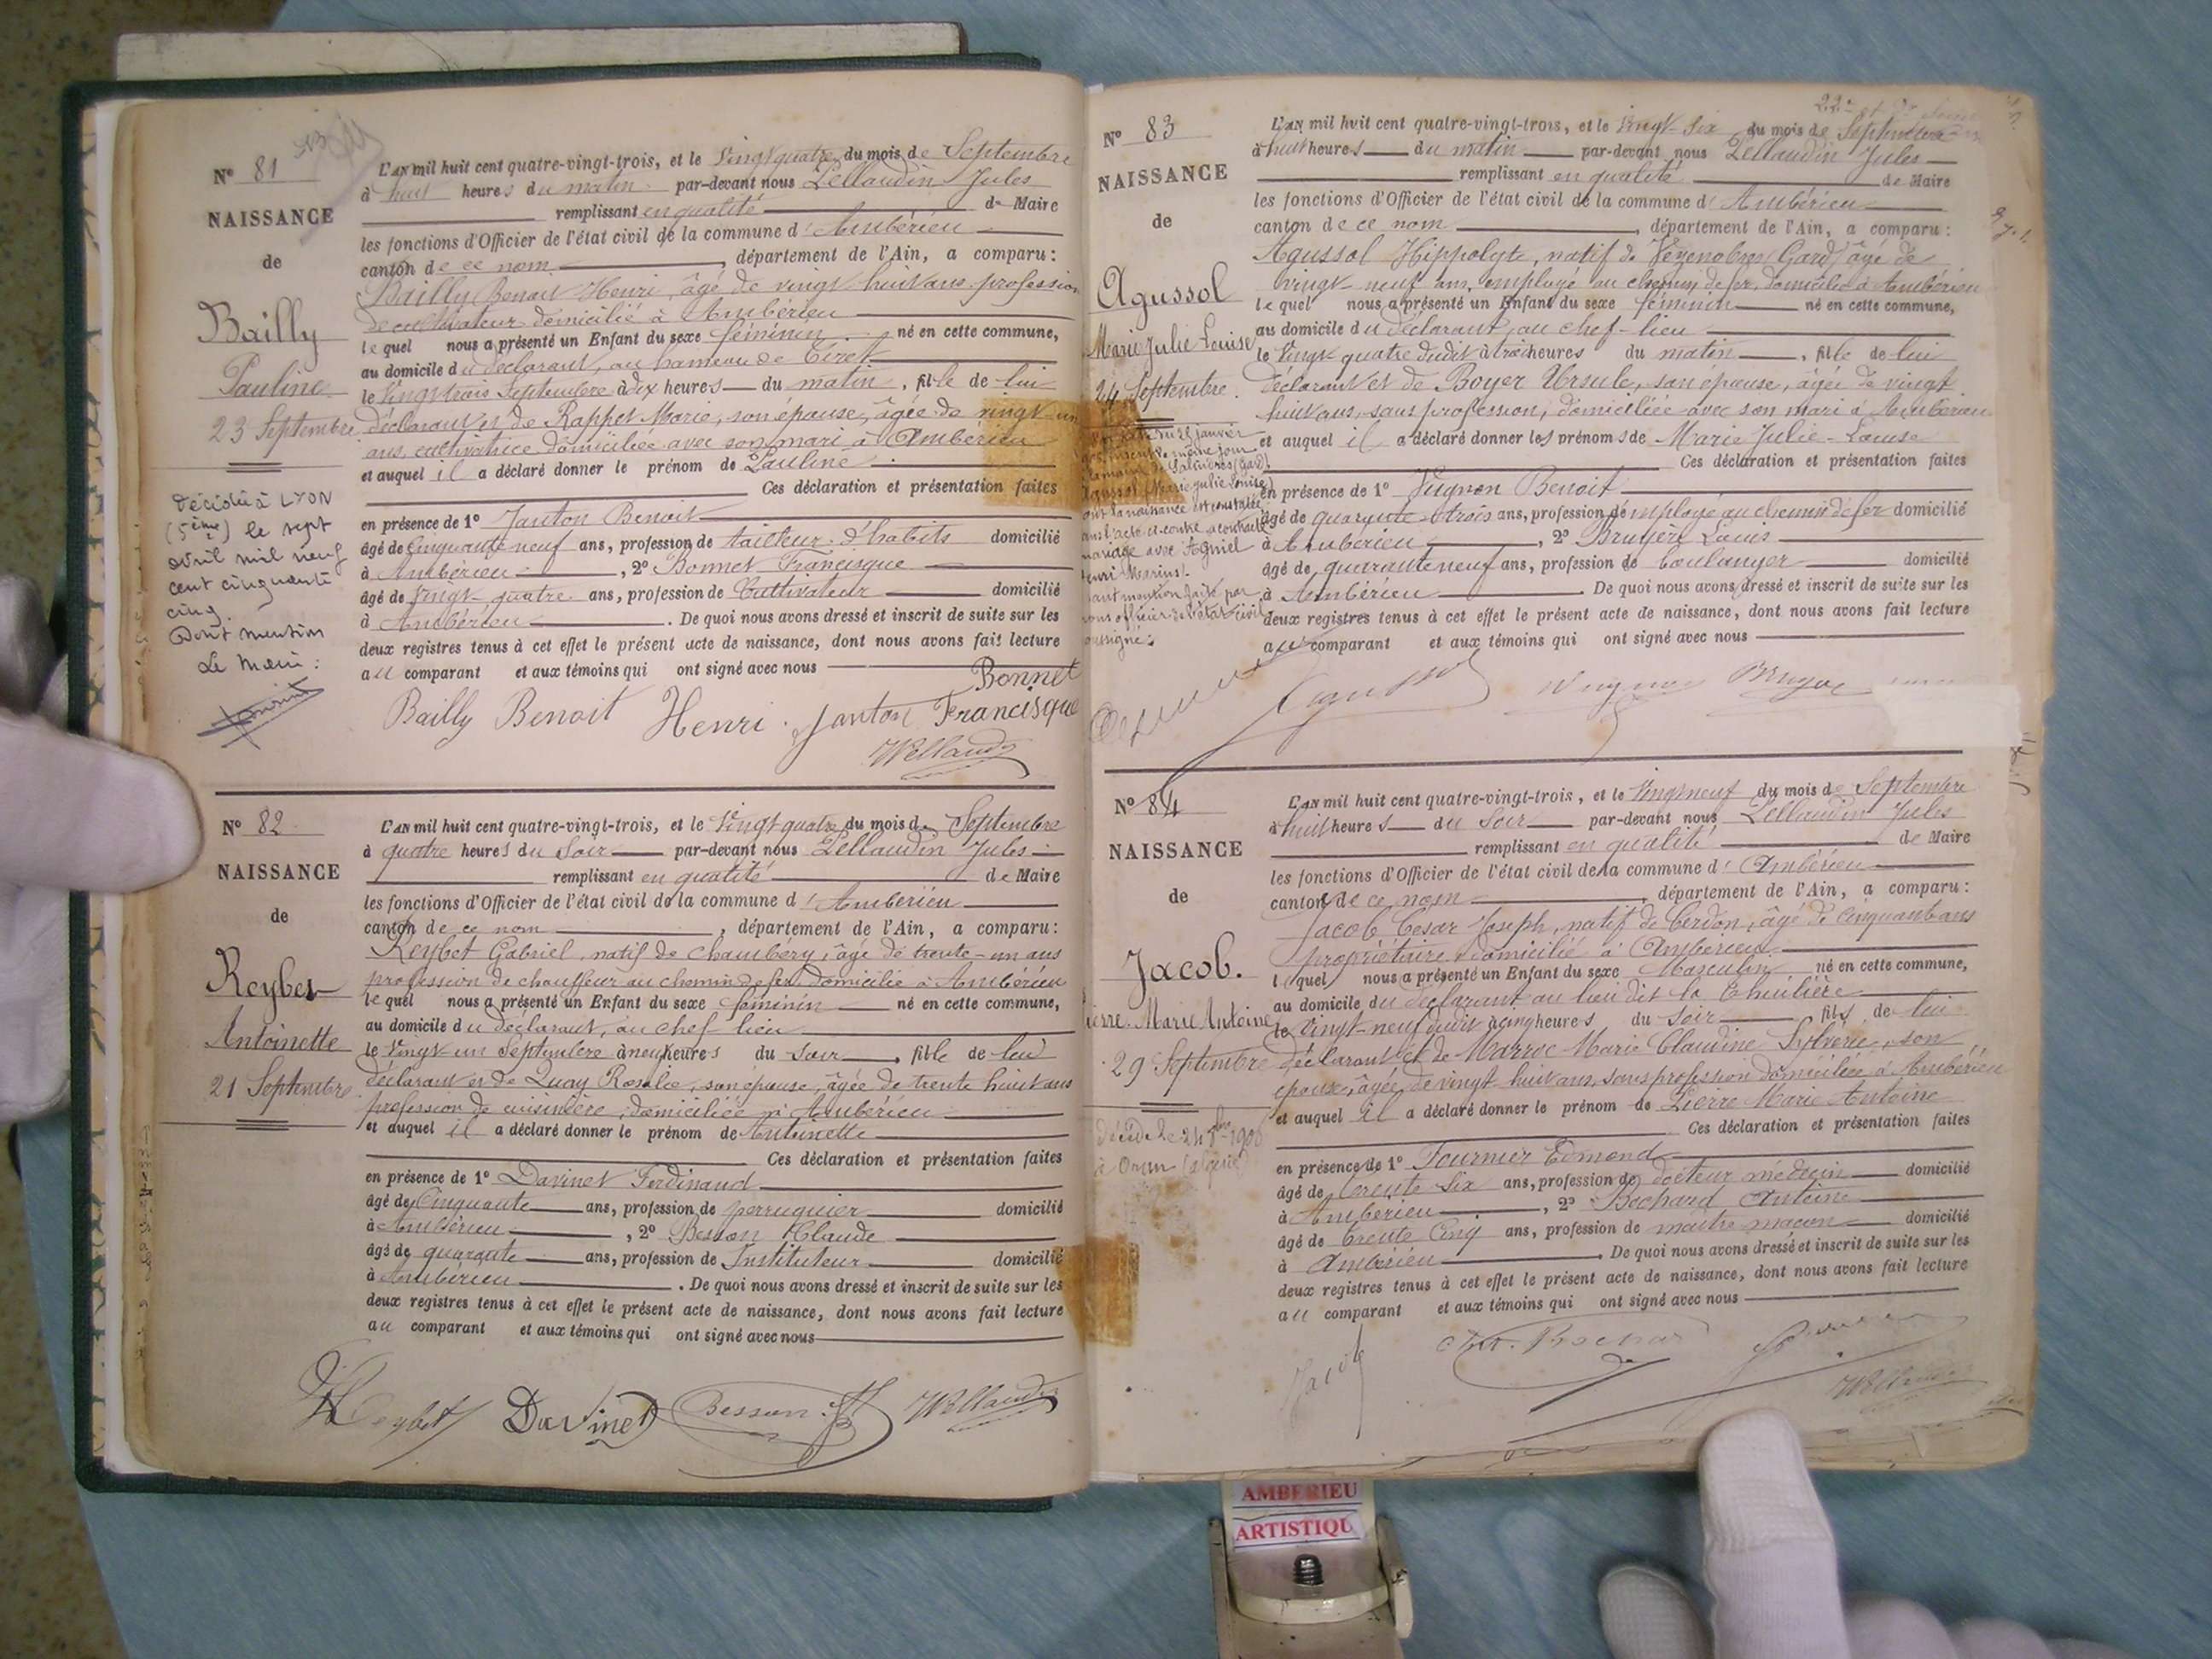 Nº 81
NAISSANCE
de
Bailly
Pauline
23 Septembre
Décédée à LYON
(5ème) le sept
avril mil neuf
cent cinquante
cinq.
Dont mention
Le Maire :
L'AN mil huit cent quatre-vingt-trois, et le Vingt quatre du mois de Septembre
à huit heures du matin par-devant nous Pellaudin Jules
remplissant en qualité de Maire
les fonctions d'Officier de l'état civil de la commune d'Ambérieu
canton de ce nom, département de l'Ain, a comparu :
Bailly Benoit Henri, âgé de vingt huit ans profession
de cultivateur domicilié à Ambérieu
lequel nous a présenté un Enfant du sexe féminin né en cette commune,
au domicile du déclarant, au hameau de Tiret
le Vingt trois Septembre à dix heures du matin, fille de lui
déclarant et de Rappet Marie, son épouse, âgée de vingt un
ans, cultivatrice domiciliée avec son mari à Ambérieu
et auquel il a déclaré donner le prénom de Pauline
Ces déclaration et présentation faites
en présence de 1º Janton Benoit
âgé de Cinquante neuf ans, profession de tailleur d'habits domicilié
à Ambérieu, 2º Bonnet Francisque
âgé de Vingt quatre ans, profession de Cultivateur domicilié
à Ambérieu. De quoi nous avons dressé et inscrit de suite sur les
deux registres tenus à cet effet le présent acte de naissance, dont nous avons fait lecture
au comparant et aux témoins qui ont signé avec nous
Bailly Benoit Henri. Janton Bonnet Francisque
Nº 82
NAISSANCE
de
Reybet
Antoinette
21 Septembre
L'AN mil huit cent quatre-vingt-trois, et le Vingt quatre du mois de Septembre
à quatre heures du Soir par-devant nous Pellaudin Jules
remplissant en qualité de Maire
les fonctions d'Officier de l'état civil de la commune d'Ambérieu
canton de ce nom, département de l'Ain, a comparu :
Reybet Gabriel, natif de Chambéry, âgé de trente-un ans
profession de chauffeur au chemin de fer domicilié à Ambérieu
lequel nous a présenté un Enfant du sexe féminin né en cette commune,
au domicile du déclarant, au chef-lieu
le Vingt-un Septembre à neuf heures du soir, fille de lui
déclarant et de Quay Rosalie, son épouse, âgée de trente huit ans
profession de cuisinière, domiciliée à Ambérieu
et auquel il a déclaré donner le prénom de Antoinette
Ces déclaration et présentation faites
en présence de 1º Davinet Ferdinand
âgé de Cinquante ans, profession de perruquier domicilié
à Ambérieu, 2º Besson Claude
âgé de quarante ans, profession de Instituteur domicilié
à Ambérieu. De quoi nous avons dressé et inscrit de suite sur les
deux registres tenus à cet effet le présent acte de naissance, dont nous avons fait lecture
au comparant et aux témoins qui ont signé avec nous
Reybet Davinet Besson
Nº 83
NAISSANCE
de
Agussol
Marie Julie Louise
24 Septembre
janvier
même jour
(Gard)
Agussol (Marie Julie Louise)
dont la naissance est constatée
dans l'acte ci-contre a contracté
mariage avec Agniel
Henri Marius.
Dont mention faite par
nous officier de l'état civil
soussigné.
L'AN mil huit cent quatre-vingt-trois, et le Vingt-Six du mois de Septembre
à huit heures du matin par-devant nous Pellaudin Jules
remplissant en qualité de Maire
les fonctions d'Officier de l'état civil de la commune d'Ambérieu
canton de ce nom, département de l'Ain, a comparu :
Agussol Hippolyte, natif de Vézenobres (Gard) âgé de
vingt-neuf ans, employé au chemin de fer, domicilié à Ambérieu
lequel nous a présenté un Enfant du sexe féminin né en cette commune,
au domicile du déclarant, au chef-lieu
le Vingt quatre dudit à trois heures du matin, fille de lui
déclarant et de Boyer Ursule, son épouse, âgée de vingt
huit ans, sans profession, domiciliée avec son mari à Ambérieu
et auquel il a déclaré donner les prénoms de Marie Julie-Louise
Ces déclaration et présentation faites
en présence de 1º Vugnon Benoit
âgé de quarante-trois ans, profession de employé au chemin de fer domicilié
à Ambérieu, 2º Bruyère Louis
âgé de quarante neuf ans, profession de boulanger domicilié
à Ambérieu. De quoi nous avons dressé et inscrit de suite sur les
deux registres tenus à cet effet le présent acte de naissance, dont nous avons fait lecture
au comparant et aux témoins qui ont signé avec nous
Nº 84
NAISSANCE
de
Jacob.
Pierre Marie Antoine
29 Septembre
décédé le 24
à Oran (Algérie)
L'AN mil huit cent quatre-vingt-trois, et le Vingt neuf du mois de Septembre
à huit heures du Soir par-devant nous Pellaudin Jules
remplissant en qualité de Maire
les fonctions d'Officier de l'état civil de la commune d'Ambérieu
canton de ce nom, département de l'Ain, a comparu :
Jacob César Joseph, natif de Cerdon, âgé de Cinquante ans
propriétaire domicilié à Ambérieu
lequel nous a présenté un Enfant du sexe Masculin né en cette commune,
au domicile du déclarant au lieu dit la
le Vingt-neuf dudit à cinq heures du Soir fils de lui
déclarant et de Marroc Marie Claudine Sylvérie, son
épouse, âgée de vingt huit ans, sans profession domiciliée à Ambérieu
et auquel il a déclaré donner le prénom de Pierre Marie Antoine
Ces déclaration et présentation faites
en présence de 1º Fournier Edmond
âgé de trente Six ans, profession de docteur médecin domicilié
à Ambérieu, 2º Bochard Antoine
âgé de trente Cinq ans, profession de maître maçon domicilié
à Ambérieu. De quoi nous avons dressé et inscrit de suite sur les
deux registres tenus à cet effet le présent acte de naissance, dont nous avons fait lecture
au comparant et aux témoins qui ont signé avec nous
Jacob
AMBERIEU
ARTISTIQU